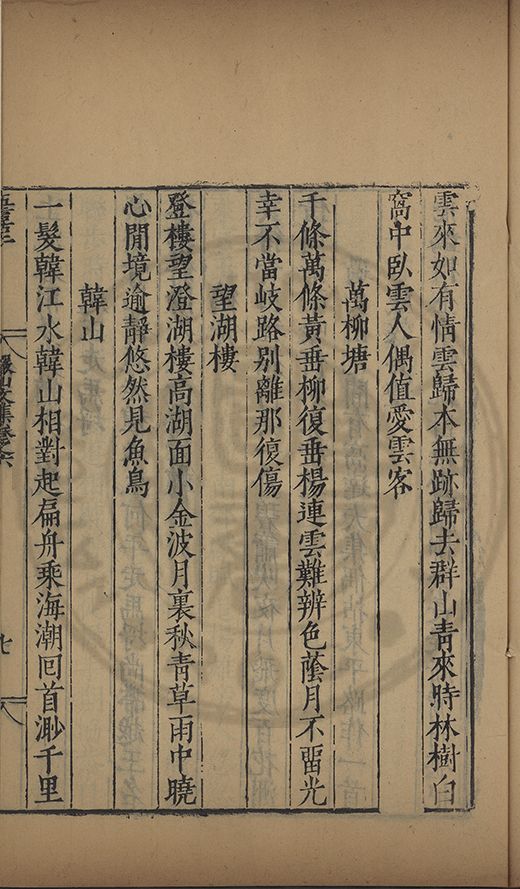 雲來如有情雲歸本無跡歸去群山青來時林樹白
窩中臥雲人偶值愛雲客
萬柳塘
千條萬條黃垂柳復垂楊連雲難辨色蔭月不畱光
幸不當岐路別離那復傷
望湖樓
登樓望澄湖樓高湖面小金波月裏秋青草雨中曉
心閒境逾靜悠然見魚鳥
韓山
一髮韓江水韓山相對起扁舟乘海潮回首渺千里
七